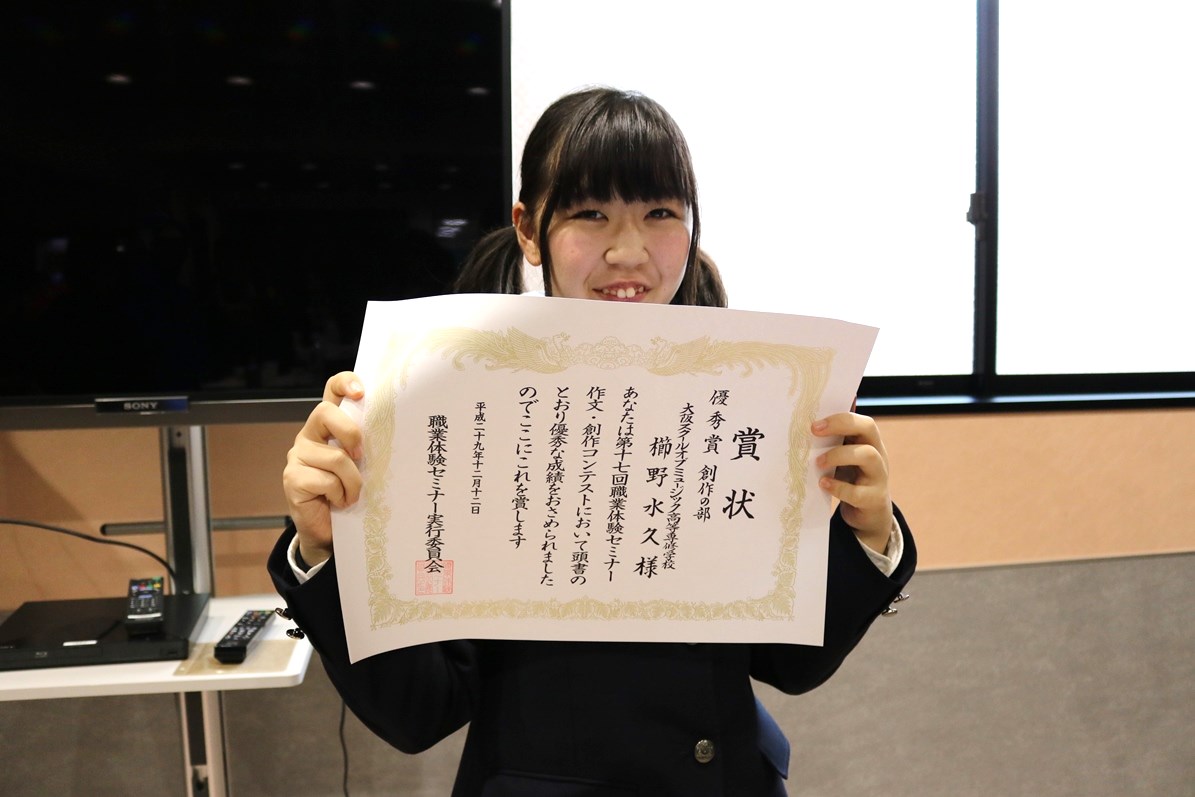 賞状
優秀賞 創作の部
大阪スクールオブミュージック高等専修学校
櫛野水久様
あなたは第十七回職業体験セミナー
作文・創作コンテストにおいて頭書の
とおり優秀な成績をおさめられました
のでここにこれを賞します
平成二十九年十二月十二日
職業体験セミナー実行委員会
SONY